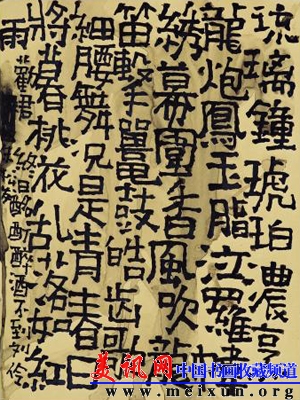 琉璃鐘琥珀濃烹
龍炮鳳玉脂泣羅幃
綉幕圍香風吹龍
笛擊鼉鼓皓齒歌
細腰舞況是青春日
將暮桃花乱落如紅
雨勸君終日酩酊醉酒不到刘伶
美讯网 中国书画收藏频道
www.meixun.org